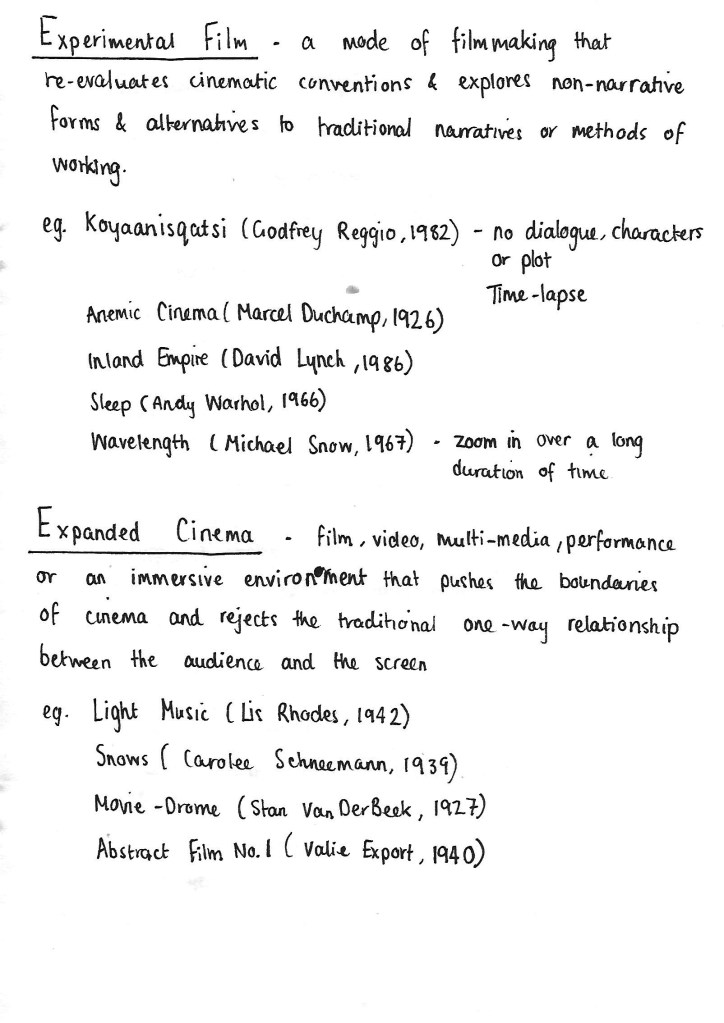 Experimental Film - a mode of filmmaking that
re-evaluates cinematic conventions & explores non-narrative
forms & alternatives to traditional narratives or methods of
working.
eg. Koyaanisqatsi (Godfrey Reggio, 1982) - no dialogue, characters
or plot
Time-lapse
Anemic Cinema (Marcel Duchamp, 1926)
Inland Empire (David Lynch, 1986)
Sleep (Andy Warhol, 1966)
Wavelength (Michael Snow, 1967) - zoom in over a long
duration of time
Expanded Cinema - film, video, multi-media, performance
or an immersive environment that pushes the boundaries
of cinema and rejects the traditional one-way relationship
between the audience and the screen
eg. Light Music (Lis Rhodes, 1942)
Snows (Carolee Schneemann, 1939)
Movie-Drome (Stan VanDerBeek, 1927)
Abstract Film No.1 (Valie Export, 1940)